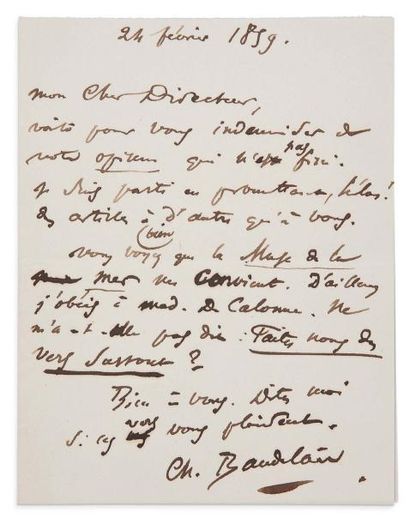 24 février 1859.
mon Cher Directeur,
voilà pour vous indemniser de
votre opium qui n'est pas fini.
je suis parti en promettant, hélas!
des articles à d'autres qu'à vous.
vous voyez bien que la Muse de la
mer me convient. D'ailleurs
j'obéis à mad. De Calonne. Ne
m'a-t-elle pas dit : Faites nous des
vers surtout ?
Bien à vous. Dites moi
si ces vers vous plaisent.
Ch. Baudelaire.